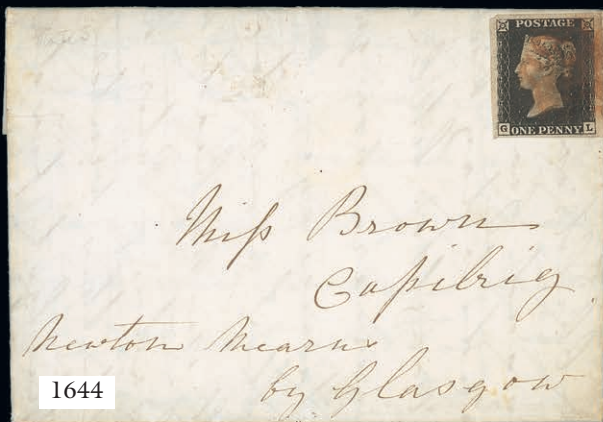 POSTAGE
G ONE PENNY L
Miss Brown
Capilrig
Newton Mearns
by Glasgow
1644